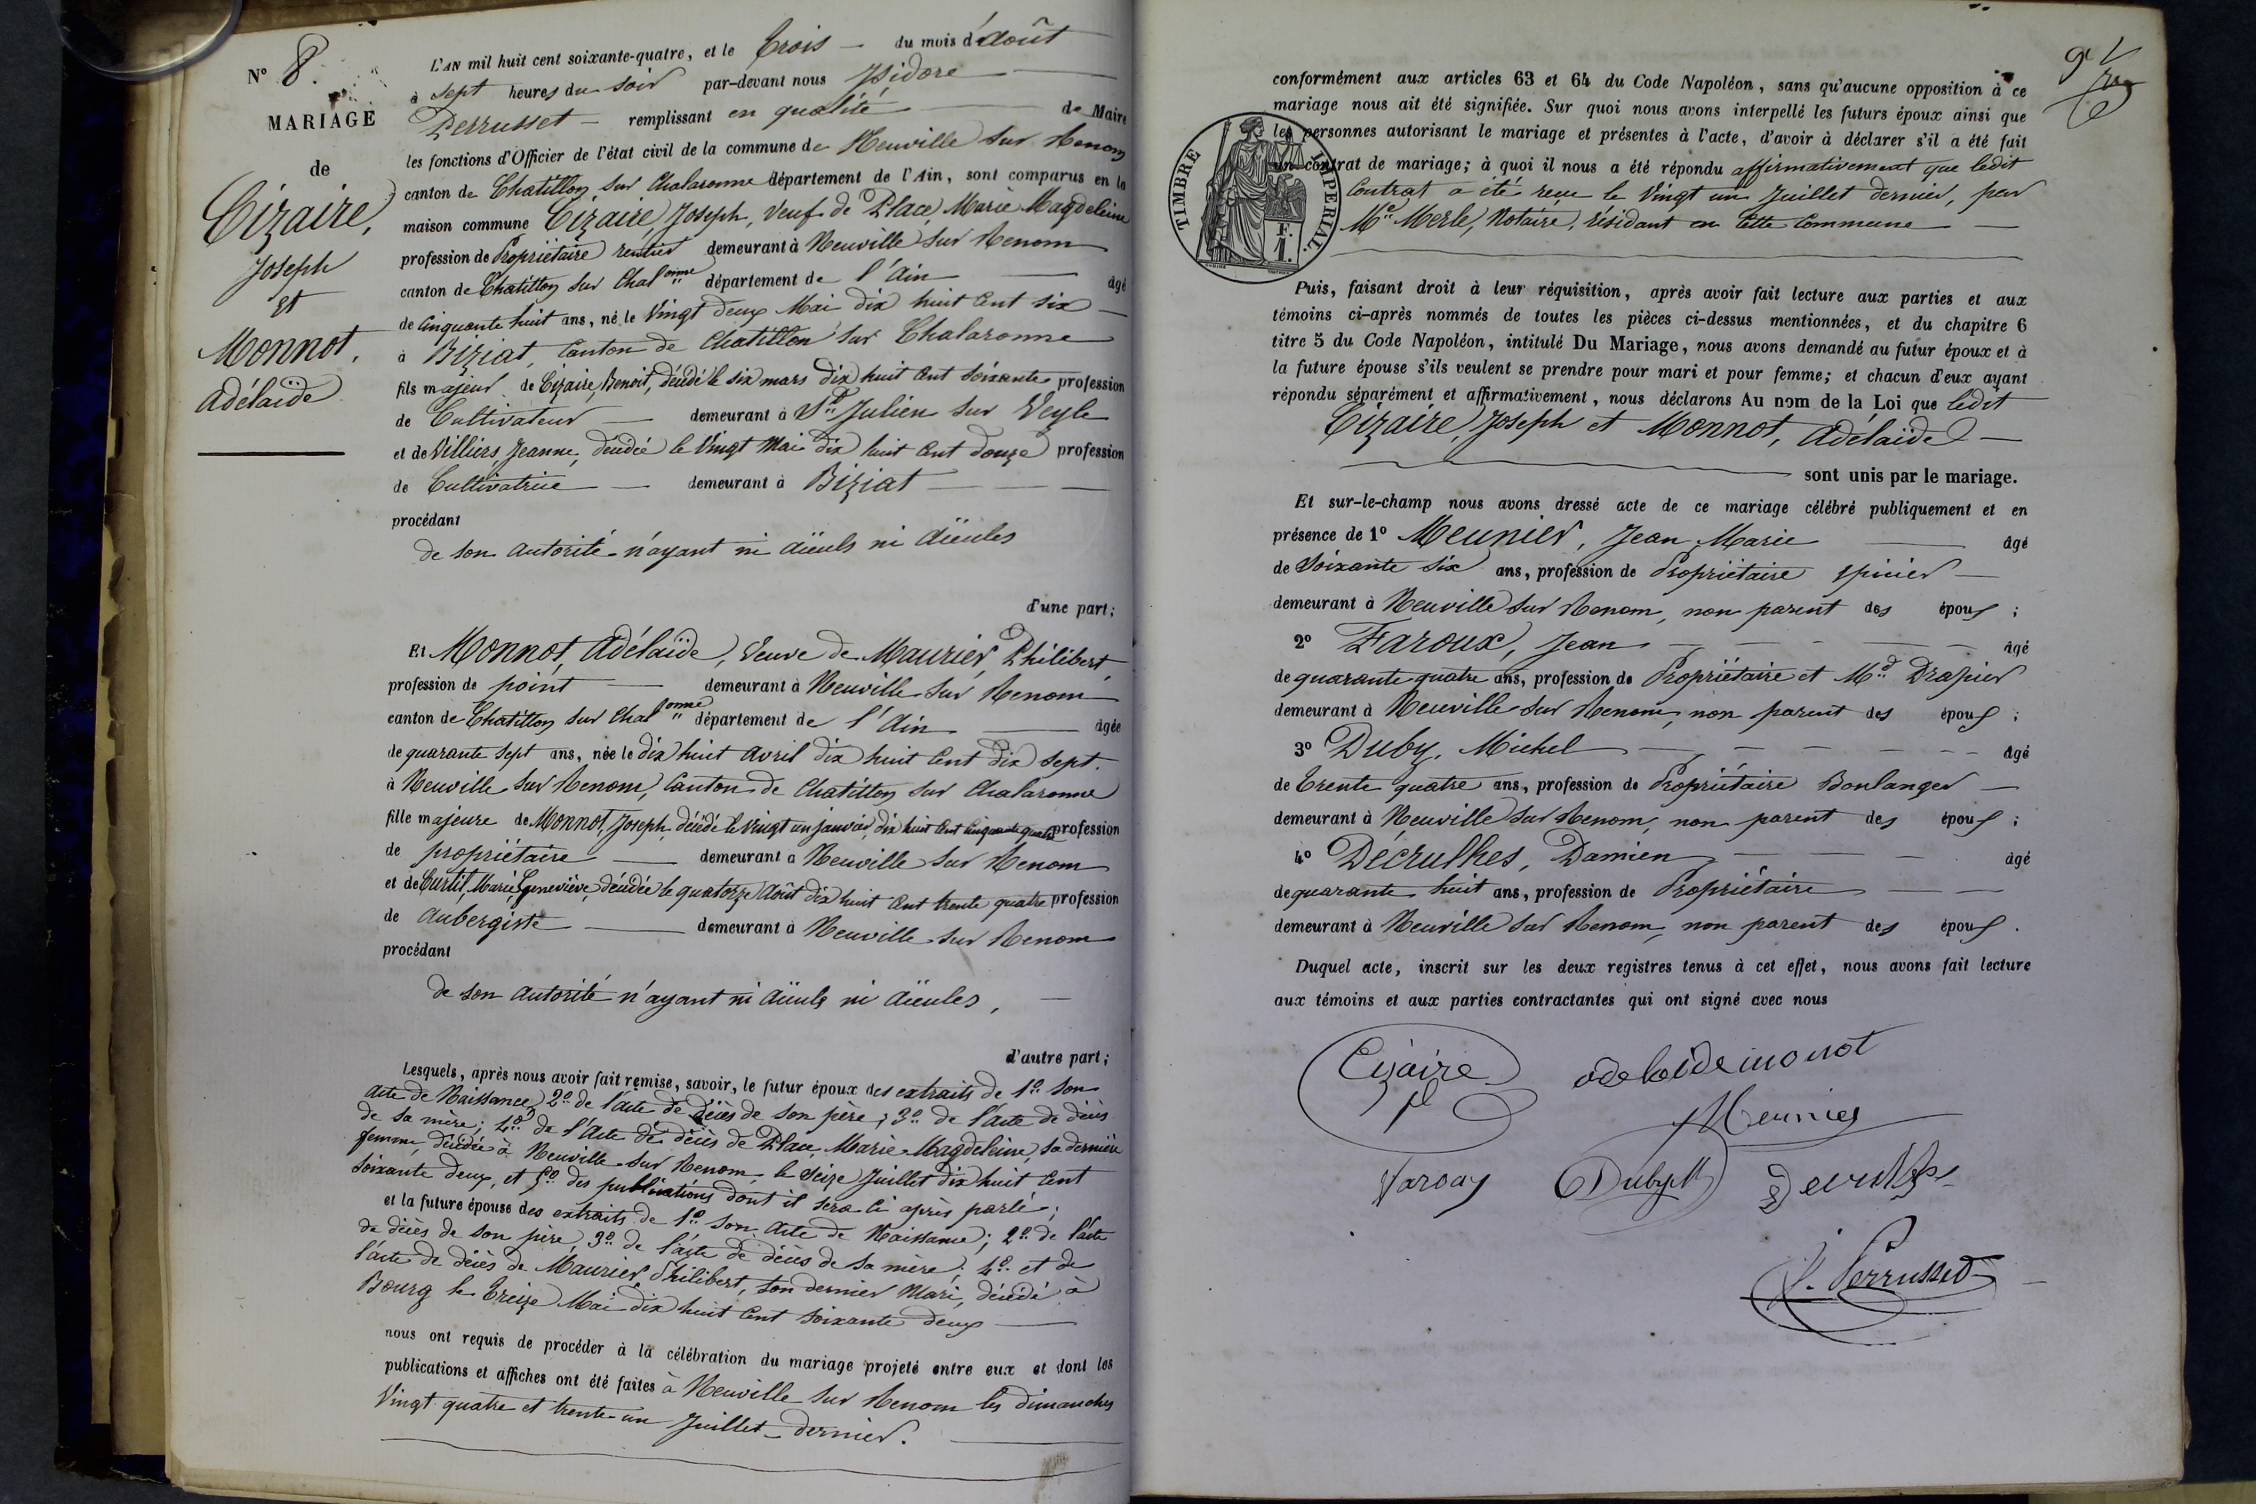 N° 8.
MARIAGE
de
Cizaire,
Joseph
et
Monnot,
Adélaïde
L'AN mil huit cent soixante-quatre, et le Trois — du mois d'Août
à sept heures du soir par-devant nous Isidore
Perrusset — remplissant en qualité de Maire
les fonctions d'Officier de l'état civil de la commune de Neuville sur Renom
canton de Chatillon sur Chalaronne département de l'Ain, sont comparus en la
maison commune Cizaire, Joseph, Veuf de Place, Marie Magdeleine
profession de Propriétaire rentier demeurant à Neuville sur Renom
canton de Chatillon sur Chalonne département de l'Ain âgé
de Cinquante huit ans, né le Vingt deux Mai dix huit Cent six
à Biziat, Canton de Chatillon sur Chalaronne
fils majeur de Cizaire, Benoit, décédé le six mars dix huit Cent soixante profession
de Cultivateur — demeurant à St Julien sur Veyle
et de Villiers Jeanne, décédée le Vingt Mai dix huit Cent douze profession
de Cultivatrice — demeurant à Biziat
procédant
de son autorité n'ayant ni aïeuls ni aïeules
d'une part;
Et Monnot, Adélaïde, Veuve de Maurier, Philibert,
profession de point — demeurant à Neuville sur Renom
canton de Chatillon sur Chalonne département de l'Ain âgée
de quarante sept ans, née le dix huit avril dix huit Cent dix sept.
à Neuville sur Renom, Canton de Chatillon sur Chalaronne
fille majeure de Monnot, Joseph, décédé le Vingt un janvier dix huit Cent Cinquante quatre profession
de propriétaire — demeurant à Neuville sur Renom
et de Curtil, Marie Geneviève, décédée le quatorze Août dix huit Cent trente quatre profession
de Aubergiste — demeurant à Neuville sur Renom
procédant
de son autorité n'ayant ni aïeuls ni aïeules,
d'autre part;
Lesquels, après nous avoir fait remise, savoir, le futur époux des extraits de 1° son
acte de Naissance, 2° de l'acte de décès de son père; 3° de l'acte de décès
de sa mère; 4° de l'Acte de décès de Place, Marie Magdeleine, sa dernière
femme, décédée à Neuville sur Renom le Seize Juillet dix huit Cent
soixante deux, et 5° des publications dont il sera ci après parlé;
et la future épouse des extraits de 1° son acte de Naissance; 2° de l'acte
de décès de son père, 3° de l'acte de décès de sa mère; 4° et de
l'acte de décès de Maurier, Philibert, son dernier Mari, décédé à
Bourg le Treize Mai dix huit Cent soixante deux
nous ont requis de procéder à la célébration du mariage projeté entre eux et dont les
publications et affiches ont été faites à Neuville sur Renom les dimanches
Vingt quatre et trente un Juillet dernier.
conformément aux articles 63 et 64 du Code Napoléon, sans qu'aucune opposition à ce
mariage nous ait été signifiée. Sur quoi nous avons interpellé les futurs époux ainsi que
les personnes autorisant le mariage et présentes à l'acte, d'avoir à déclarer s'il a été fait
un contrat de mariage; à quoi il nous a été répondu affirmativement que ledit
Contrat a été reçu le Vingt un Juillet dernier, par
Me Merle, Notaire, résidant en Cette Commune
TIMBRE IMPERIAL.
F.
1.
Puis, faisant droit à leur réquisition, après avoir fait lecture aux parties et aux
témoins ci-après nommés de toutes les pièces ci-dessus mentionnées, et du chapitre 6
titre 5 du Code Napoléon, intitulé Du Mariage, nous avons demandé au futur époux et à
la future épouse s'ils veulent se prendre pour mari et pour femme; et chacun d'eux ayant
répondu séparément et affirmativement, nous déclarons Au nom de la Loi que ledit
Cizaire, Joseph et Monnot, Adélaïde
sont unis par le mariage.
Et sur-le-champ nous avons dressé acte de ce mariage célébré publiquement et en
présence de 1° Meunier, Jean Marie âgé
de Soixante six ans, profession de Propriétaire épicier
demeurant à Neuville sur Renom, non parent des époux;
2° Faroux, Jean âgé
de quarante quatre ans, profession de Propriétaire et Md Drapier
demeurant à Neuville sur Renom, non parent des époux;
3° Duby, Michel âgé
de Trente quatre ans, profession de Propriétaire Boulanger
demeurant à Neuville sur Renom, non parent des époux;
4° Décrulhes, Damien âgé
de quarante huit ans, profession de Propriétaire
demeurant à Neuville sur Renom, non parent des époux.
Duquel acte, inscrit sur les deux registres tenus à cet effet, nous avons fait lecture
aux témoins et aux parties contractantes qui ont signé avec nous
Cizaire
adelaide monot
Meunier
Duby M
I. Perrusset